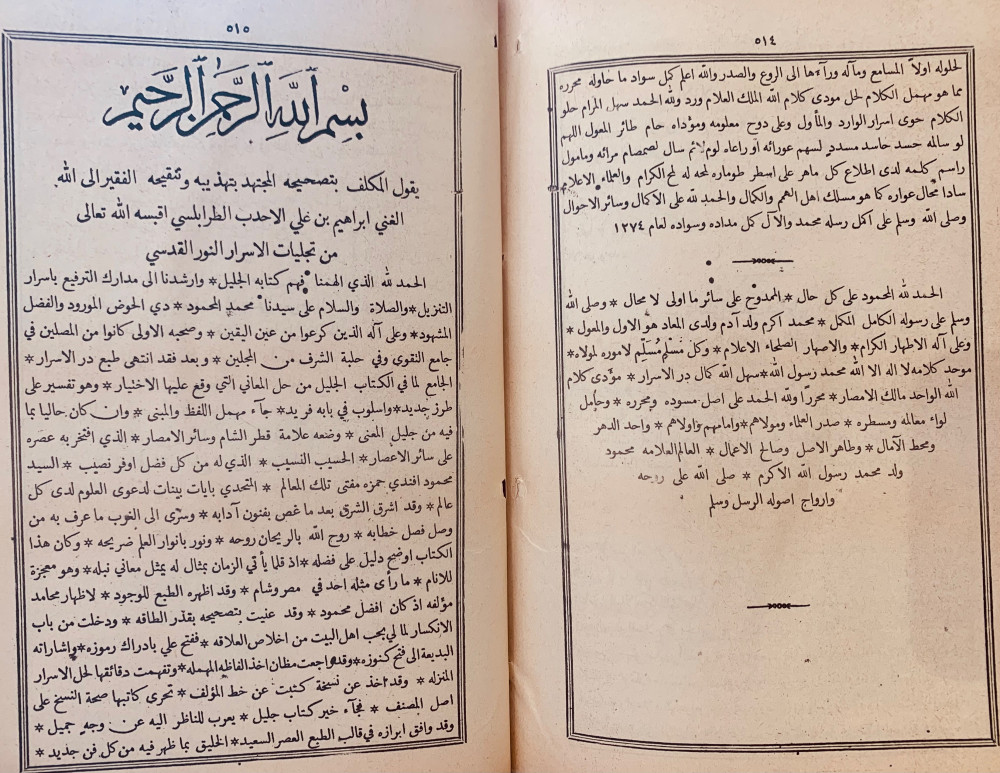 ٥١٤
لحلوله اولاً المسامع ومآله ورآءها الى الروع والصدر والله اعلم كمل سواد ما حاوله محرره
مما هو مهمل الكلام لحل مودى كلام الله الملك العلام ورد ولله الحمد سهل المرام حلو
الكلام حوى اسرار الوارد والمأول وعلى دوح معلومه ومؤداه حام طائر المعول اللهم
لو سالمه حسد حاسد مسدد لسهم عورائه أو راعاه لوم لائم سال لصمصام مرائه ومامول
راسم كلمه لدى اطلاع كل ماهر على اسطر طوماره لمحه له لمح الكرام والعلماء الاعلام
سادا محال عواره كما هو مسلك اهل الهمم والكمال والحمد لله على الاكمال وسائر الاحوال
وصلى الله وسلم على اكمل رسله محمد والآل كمل مداده وسواده لعام ١٢٧٤
الحمد لله المحمود على كل حال * الممدوح على سائر ما اولى لا محال * وصلى الله
وسلم على رسوله الكامل المكمل * محمد اكرم ولد آدم ولدى المعاد هو الاول والمعول *
وعلى آله الاطهار الكرام * والاصهار الصلحاء الاعلام * وكل مسلم مُسلِّم لاموره لمولاه *
موحد كلامه لا اله الا الله محمد رسول الله * سهل الله كمال در الاسرار * مؤدى كلام
الله الواحد مالك الامصار * محررا ولله الحمد على اصل مسوده ومحرره * وحامل
لواء معالمه ومسطره * صدر العلماء ومولاهم * وامامهم واولاهم * واحد الدهر
ومحط الآمال * وطاهر الاصل وصالح الاعمال * العالم العلامه محمود
ولد محمد رسول الله الاكرم * صلى الله على روحه
وارواح اصوله الرسل وسلم
٥١٥
بسم الله الرحمن الرحيم
يقول المكلف بتصحيحه المجتهد بتهذيبه وتنقيحه الفقير الى الله
الغني ابراهيم بن علي الاحدب الطرابلسي اقبسه الله تعالى
من تجليات الاسرار النور القدسي
الحمد لله الذي الهمنا فهم كتابه الجليل * وارشدنا الى مدارك الترفيع باسرار
التنزيل * والصلاة والسلام على سيدنا محمد المحمود * ذي الحوض المورود والفضل
المشهود * وعلى آله الذين كرعوا من عين اليقين * وصحبه الاولى كانوا من المصلين في
جامع التقوى وفي حلبة الشرف من المجلين * وبعد فقد انتهى طبع در الاسرار *
الجامع لما في الكتاب الجليل من حل المعاني التي وقع عليها الاختيار * وهو تفسير على
طرز جديد * واسلوب في بابه فريد * جآء مهمل اللفظ والمبنى * وان كان حاليا بما
فيه من جليل المعنى * وضعه علامة قطر الشام وسائر الامصار * الذي افتخر به عصره
على سائر الاعصار * الحسيب النسيب * الذي له من كل فضل اوفر نصيب * السيد
محمود افندي حمزه مفتي تلك المعالم * المتحدي بايات بينات لدعوى العلوم لدى كل
عالم * وقد اشرق الشرق بعد ما غص بفنون آدابه * وسرّى الى الغرب ما عرف به من
وصل فصل خطابه * روح الله بالريحان روحه * ونور بانوار العلم ضريحه * وكان هذا
الكتاب اوضح دليل على فضله * اذ قلما يأتي الزمان بمثال له يمثل معاني نبله * وهو معجزة
للانام * ما رأى مثله احد في مصر وشام * وقد اظهره الطبع للوجود * لاظهار محامد
مؤلفه اذ كان افضل محمود * وقد عنيت بتصحيحه بقدر الطاقه * ودخلت من باب
الانكسار لما لي بحب اهل البيت من اخلاص العلاقه * ففتح علي بادراك رموزه * واشاراته
البديعة الى فتح كنوزه * وقد راجعت مظان اخذ الفاظه المهمله * وتفهمت دقائقها لحل الاسرار
المنزله * وقد اخذ عن نسخة كتبت عن خط المؤلف * تحرى كاتبها صحة النسخ على
اصل المصنف * فجآء خير كتاب جليل * يعرب للناظر اليه عن وجه جميل *
وقد وافق ابرازه في قالب الطبع العصر السعيد * الخليق بما ظهر فيه من كل فن جديد *